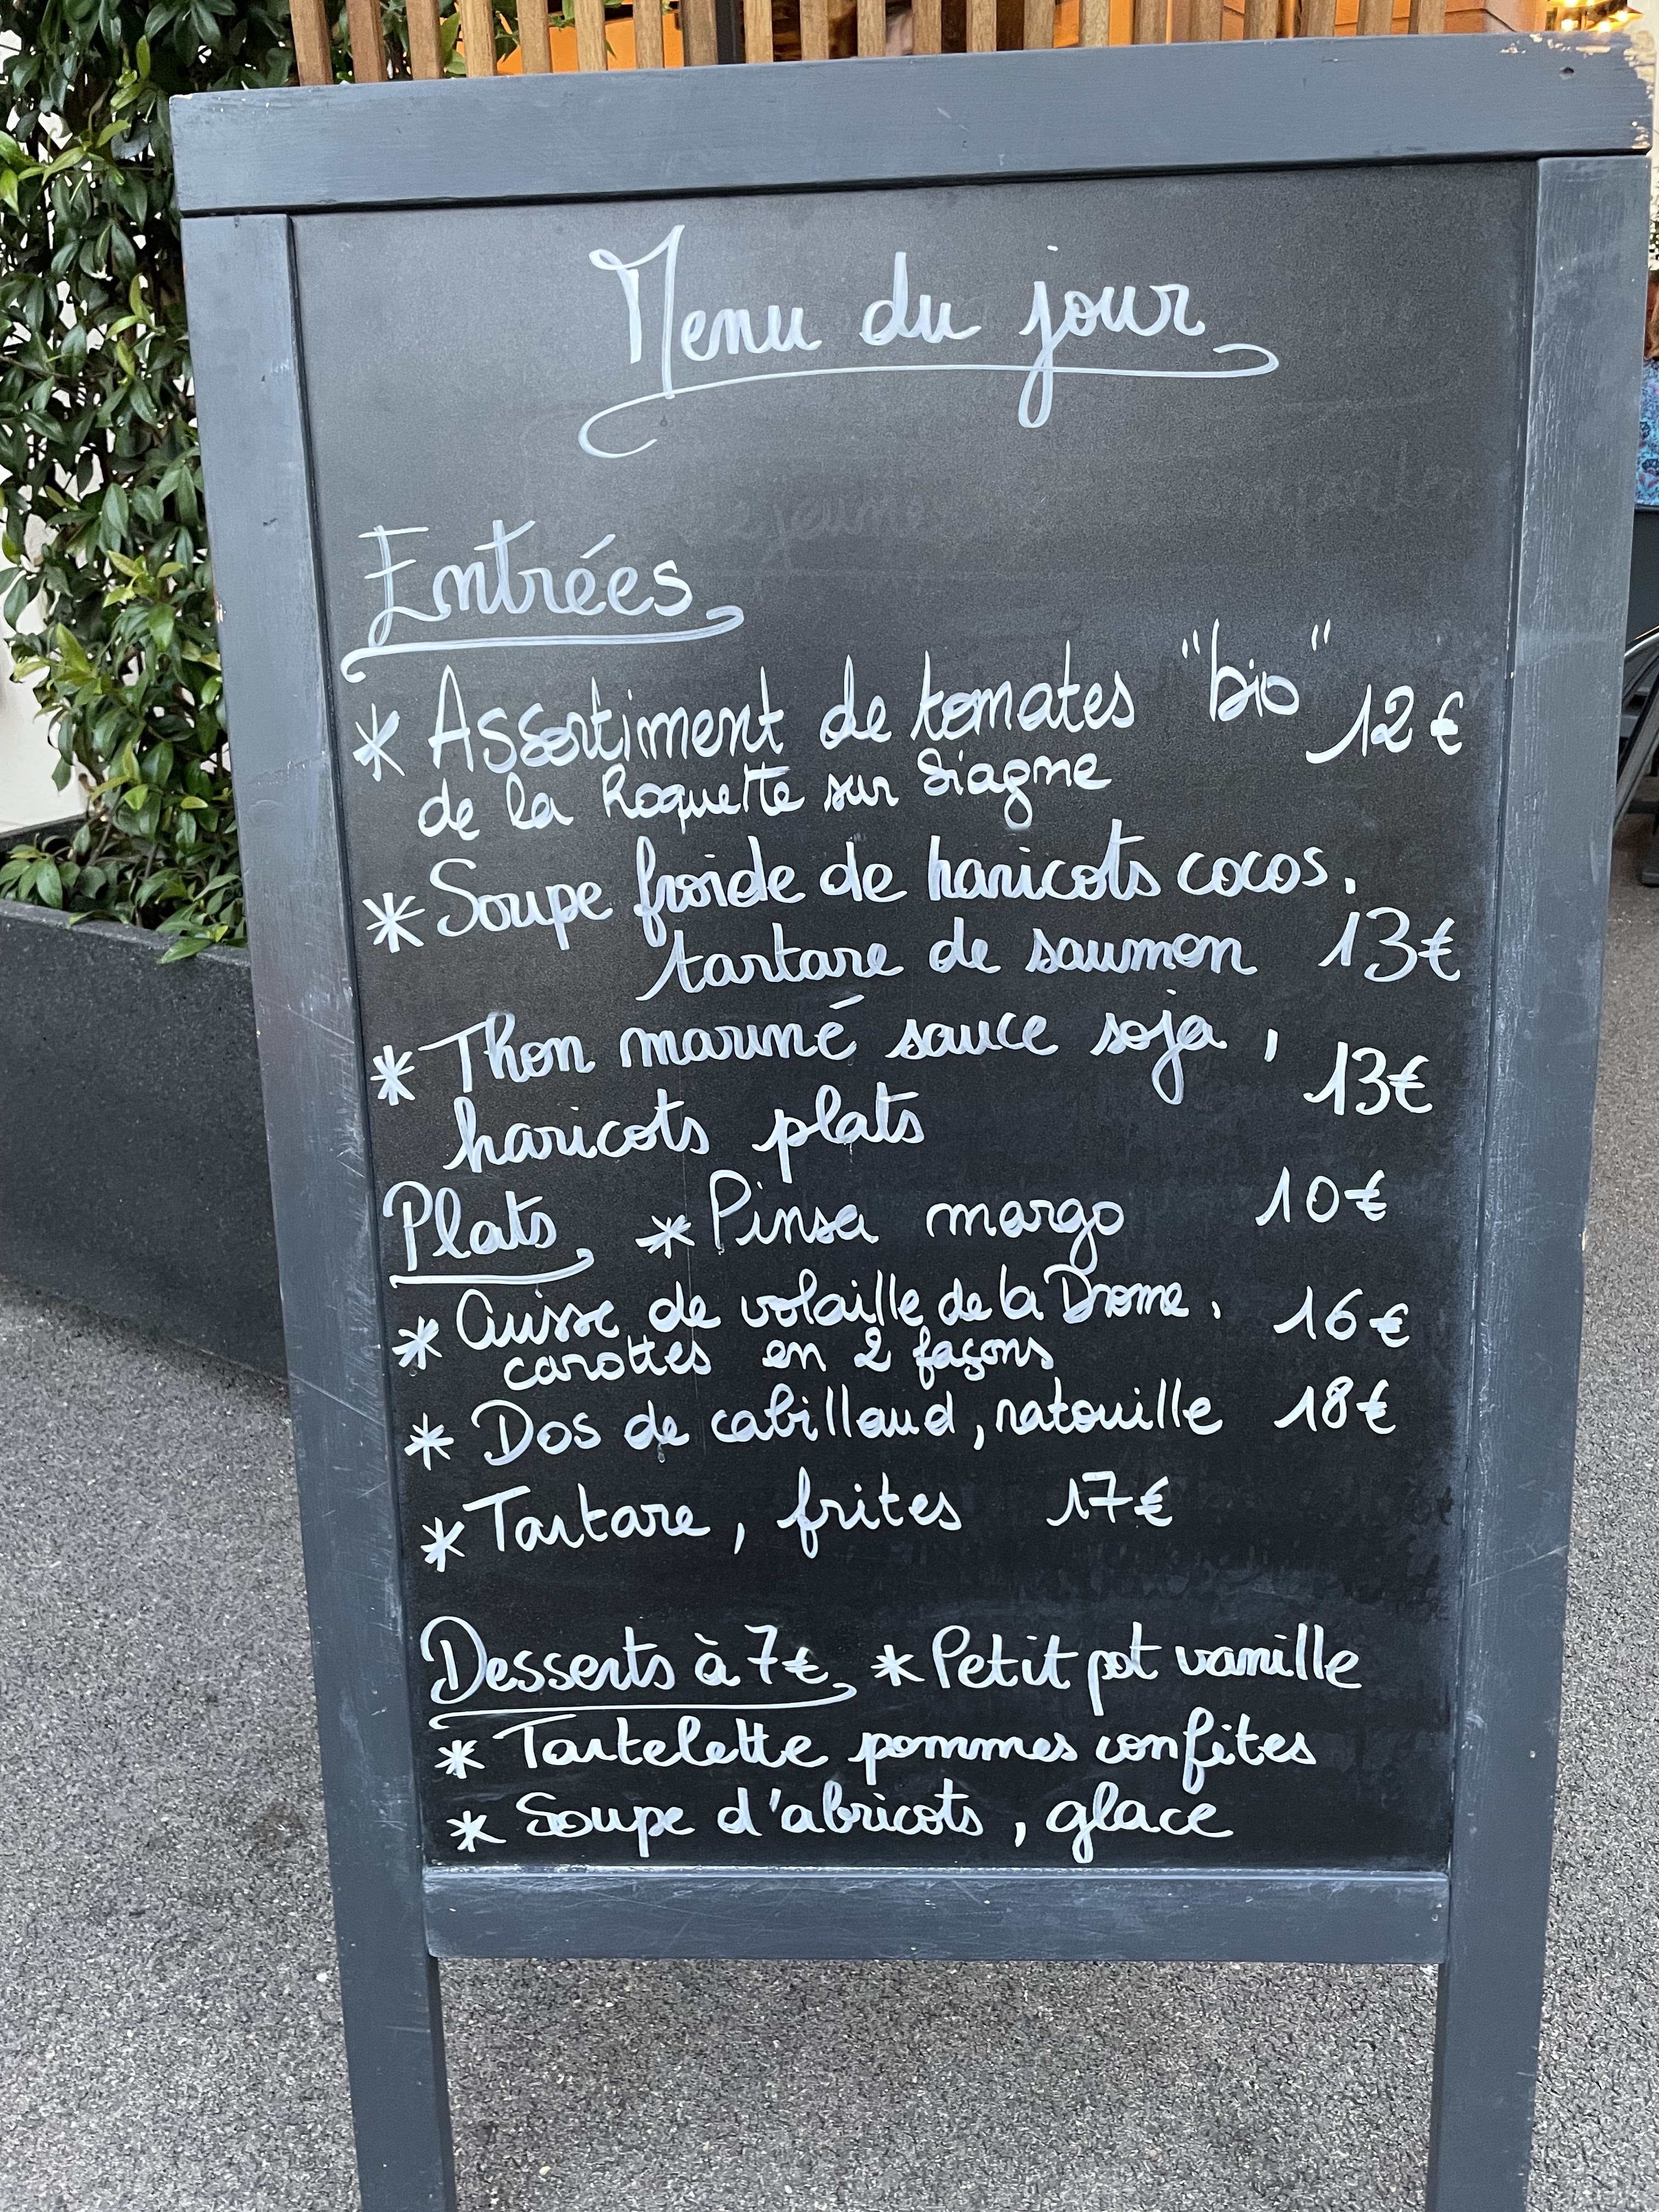 Menu du jour
Entrées
* Assortiment de tomates "bio" 12€
de la Roquette sur Siagne
* Soupe froide de haricots cocos,
tartare de saumon 13€
* Thon mariné sauce soja,
haricots plats 13€
Plats * Pinsa margo 10€
* Cuisse de volaille de la Drome, 16€
carottes en 2 façons
* Dos de cabillaud, ratouille 18€
* Tartare, frites 17€
Desserts à 7€ * Petit pot vanille
* Tartelette pommes confites
* Soupe d'abricots, glace